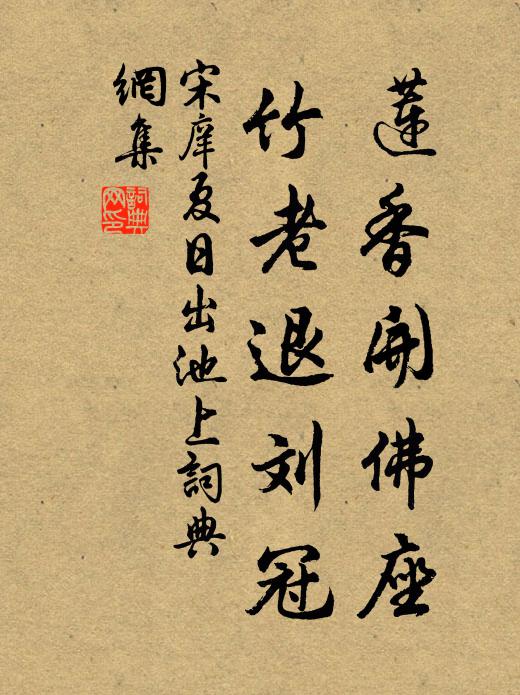 蓮香開佛座
竹老退刘冠
宋庠夏日出池上詞典
網集
詞典網印